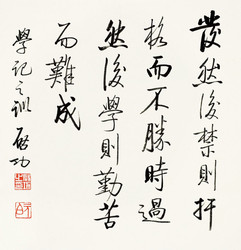 發然後禁則扞
格而不勝時過
然後學則勤苦
而難成
學記之訓 啟功